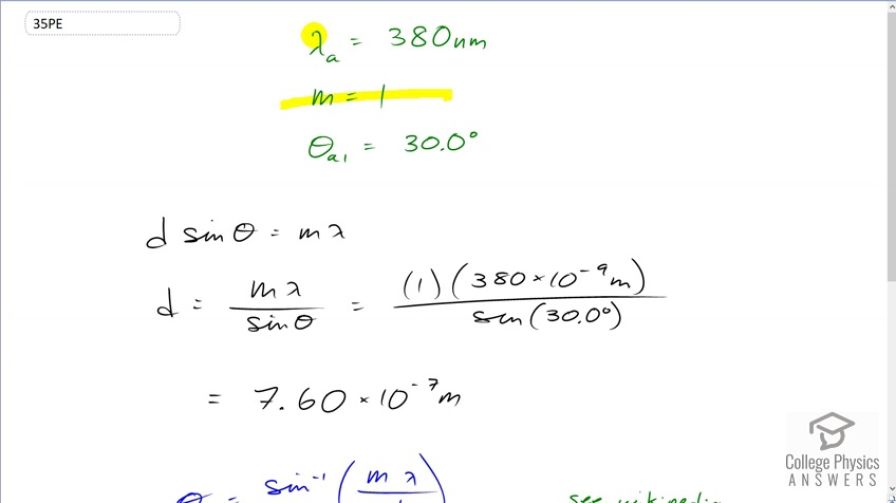 35PE
λa = 380nm
m = 1
θa1 = 30.0°
d sinθ = mλ
d = mλ / sinθ = (1)(380×10⁻⁹m) / sin(30.0°)
= 7.60×10⁻⁷m
θ = sin⁻¹(mλ
see wikipedia
College Physics
ANSWERS